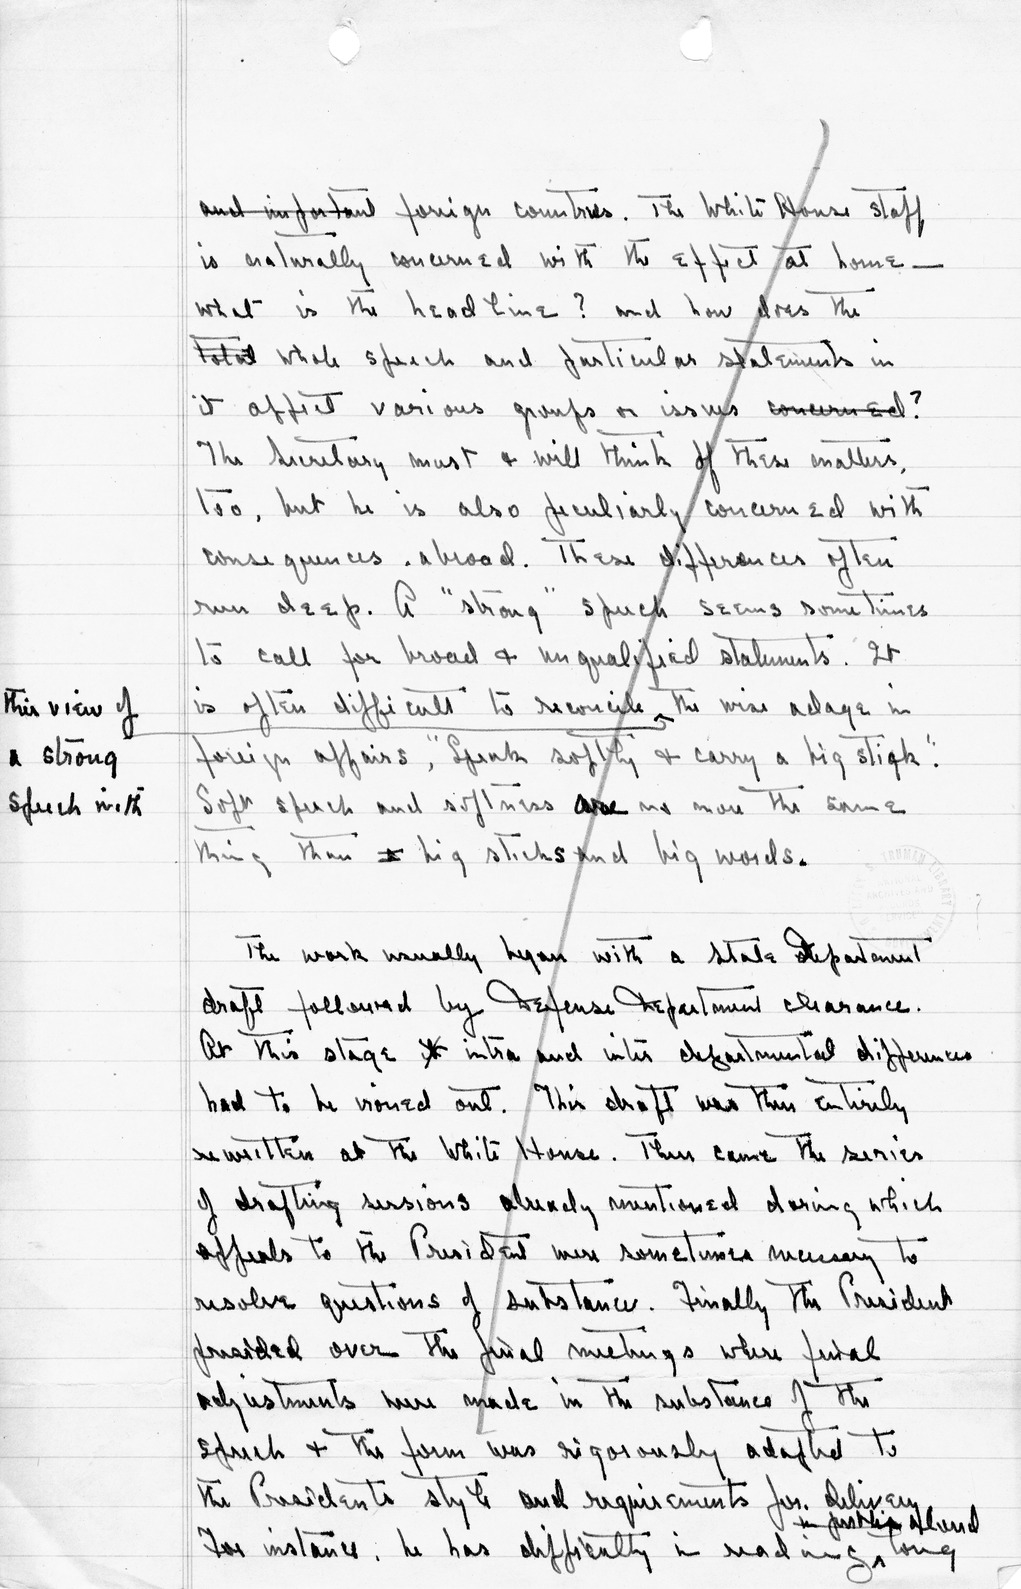 and important foreign countries. The White House staff
is naturally concerned with the effect at home—
what is the headline? and how does the
total whole speech and particular statements in
it affect various groups or issues concerned?
The Secretary must & will think of these matters,
too, but he is also peculiarly concerned with
consequences abroad. These differences often
run deep. A "strong" speech seems sometimes
to call for broad & unqualified statements. It
is often difficult to reconcile the wise adage in
this view of
a strong
speech with
foreign affairs, "Speak softly & carry a big stick".
Soft speech and softness are no more the same
thing than big sticks and big words.
The work usually began with a State Department
draft followed by Defense Department clearance.
At this stage intra and inter departmental differences
had to be ironed out. This draft was then entirely
rewritten at the White House. Then came the series
of drafting sessions already mentioned during which
appeals to the President were sometimes necessary to
resolve questions of substance. Finally the President
presided over the final meetings where final
adjustments were made in the substance of the
speech & the form was rigorously adapted to
the Presidents style and requirements for delivery
aloud
For instance, he has difficulty in reading long